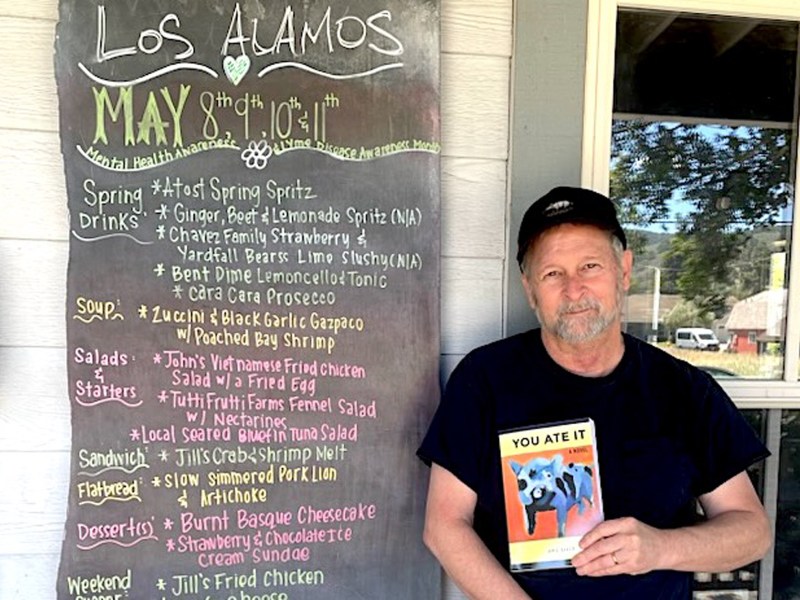 LOS ALAMOS
MAY 8th, 9th, 10th & 11th
Mental Health Awareness & Lyme Disease Awareness Month
Spring Drinks: * Atost Spring Spritz
* Ginger, Beet & Lemonade Spritz (N/A)
* Chavez Family Strawberry &
Yardfall Bearss Lime Slushy (N/A)
* Bent Dime Lemoncello & Tonic
* Cara Cara Prosecco
Soup: * Zuccini & Black Garlic Gazpaco
w/ Poached Bay Shrimp
Salads & Starters * John's Vietnamese Fried Chicken
Salad w/ a Fried Egg
* Tutti Frutti Farms Fennel Salad
w/ Nectarines
* Local Seared Bluefin Tuna Salad
Sandwich: * Jill's Crab & Shrimp Melt
Flatbread: * Slow Simmered Pork Lion
& Artichoke
Dessert(s) * Burnt Basque Cheesecake
* Strawberry & Chocolate Ice
Cream Sundae
Weekend * Jill's Fried Chicken
YOU ATE IT
A NOVEL